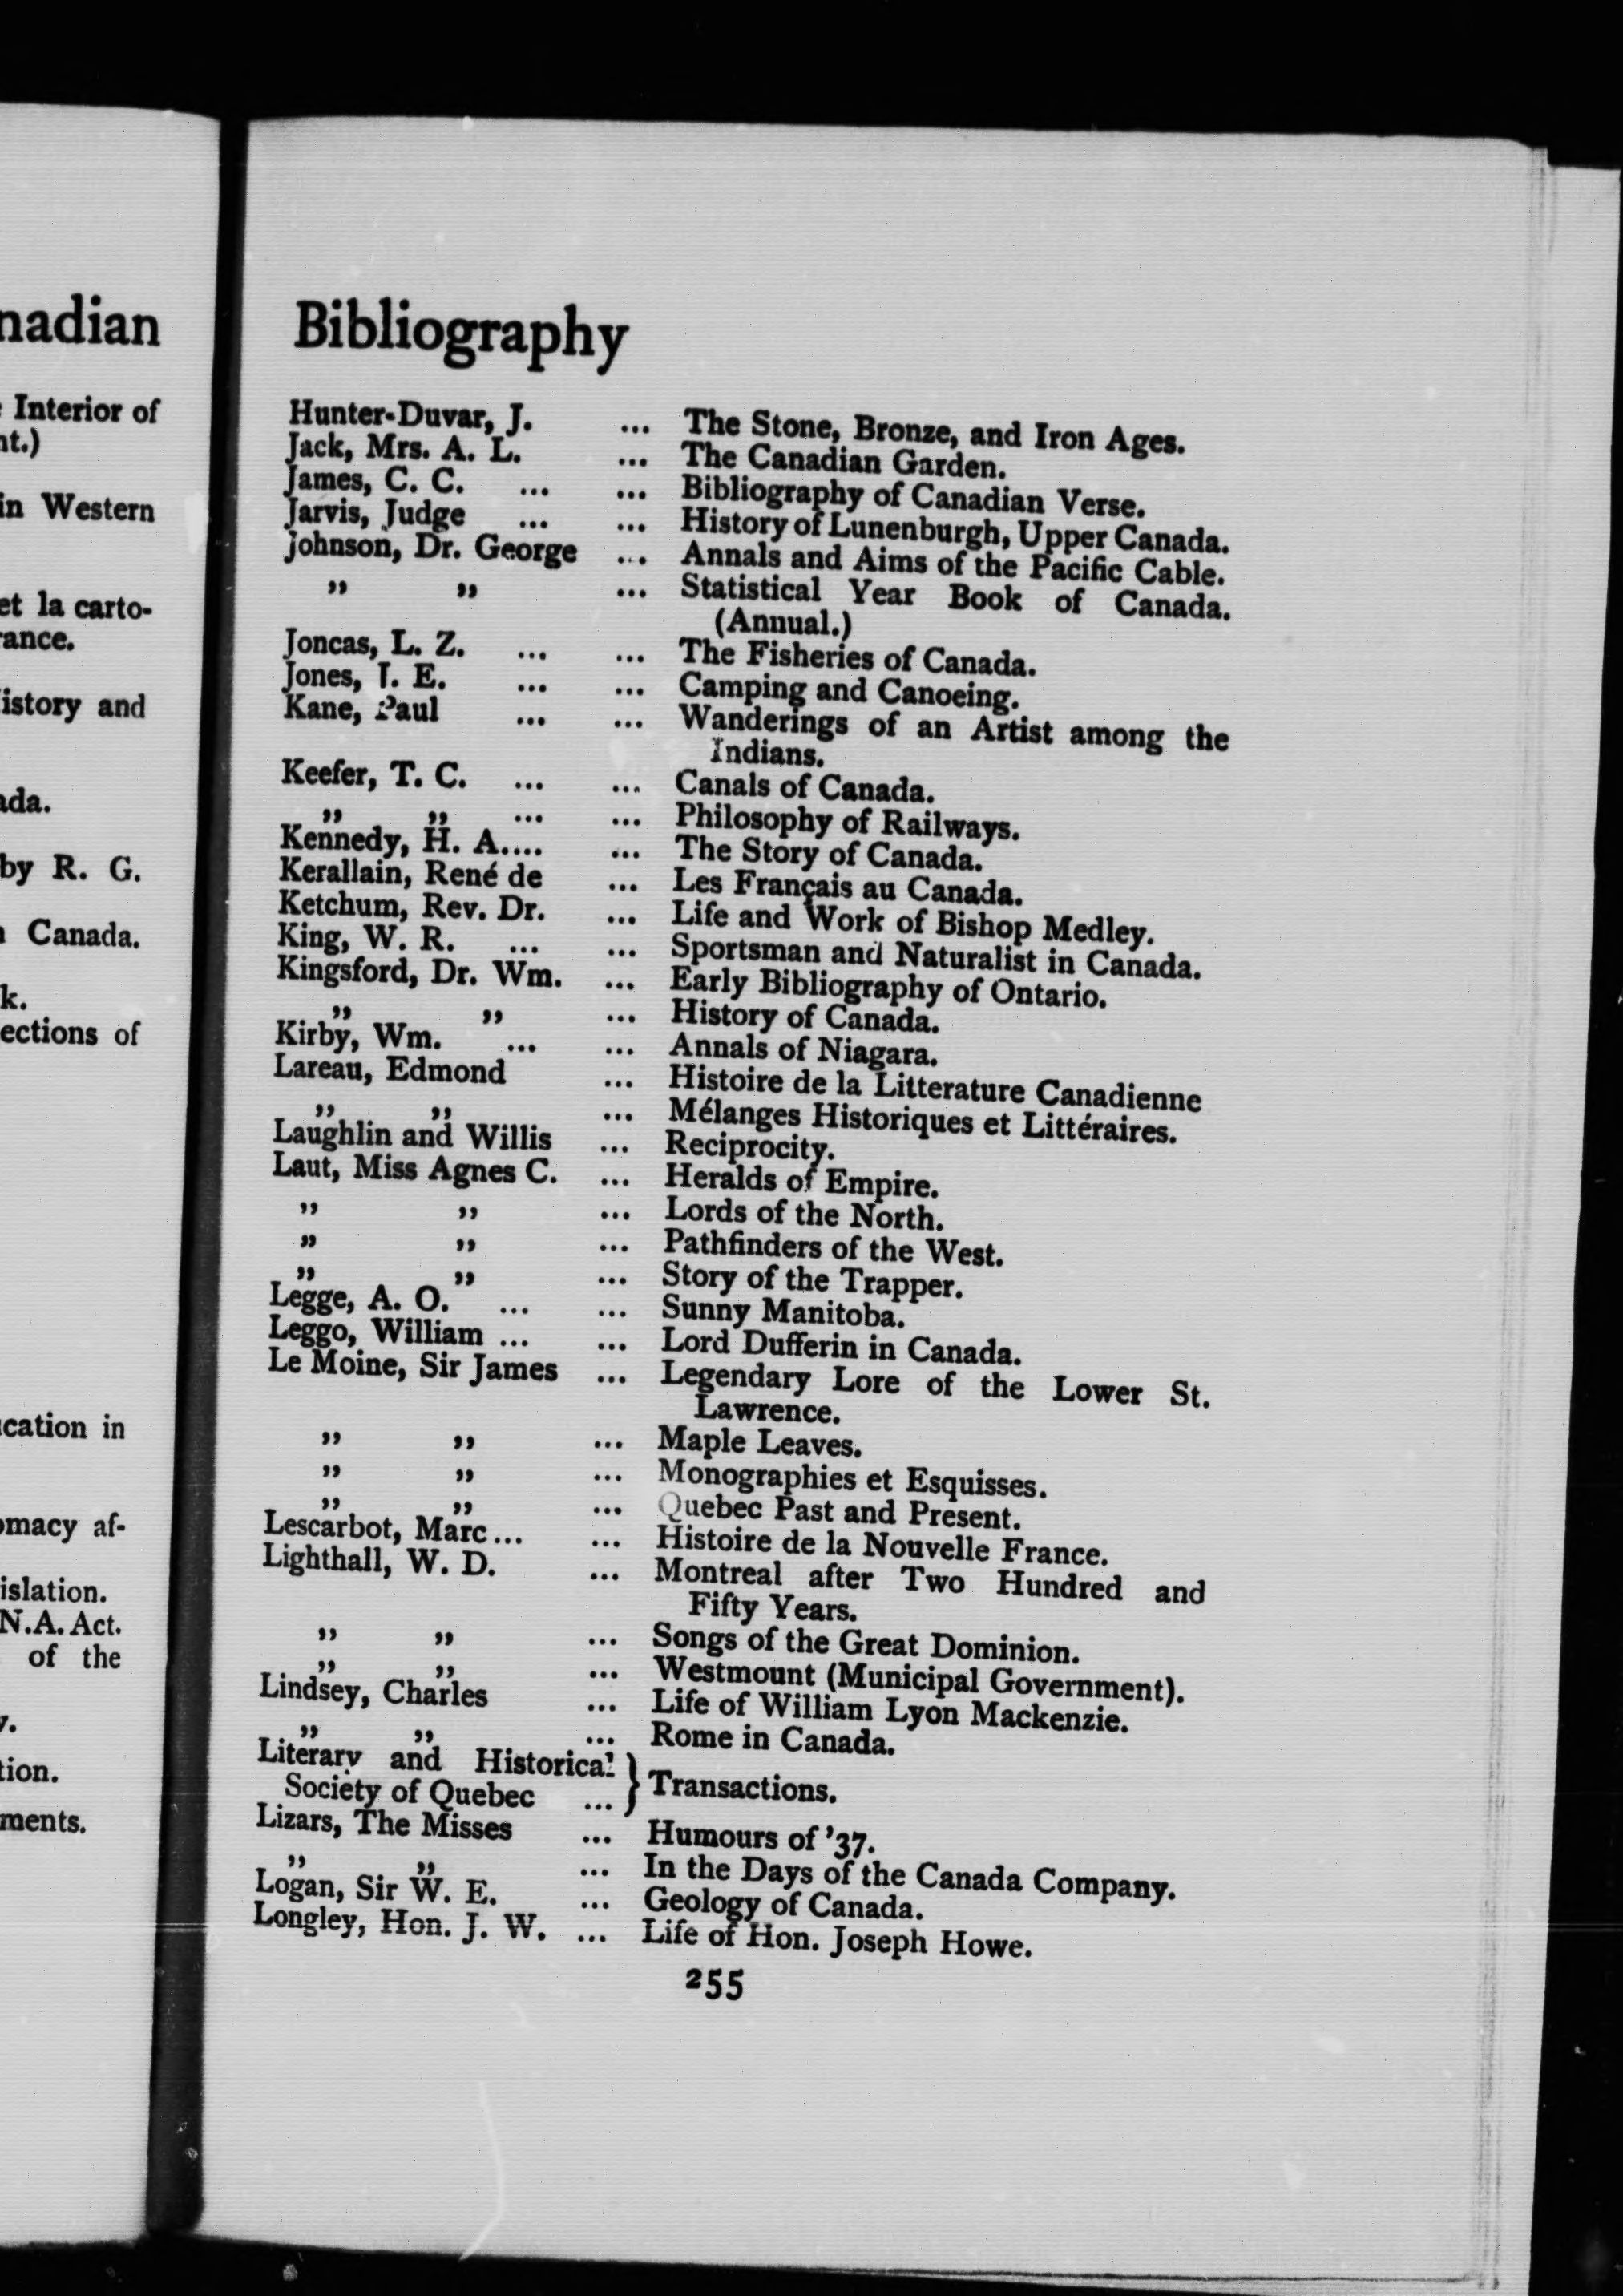 nadian
Interior of
nt.)
in Western
et la carto-
rance.
istory and
ada.
by R. G.
Canada.
k.
ections of
cation in
omacy af-
islation.
N.A. Act.
of the
y.
tion.
ments.
Bibliography
Hunter-Duvar, J. ... The Stone, Bronze, and Iron Ages.
Jack, Mrs. A. L. ... The Canadian Garden.
James, C. C. ... ... Bibliography of Canadian Verse.
Jarvis, Judge ... ... History of Lunenburgh, Upper Canada.
Johnson, Dr. George ... Annals and Aims of the Pacific Cable.
„ „ ... Statistical Year Book of Canada.
(Annual.)
Joncas, L. Z. ... ... The Fisheries of Canada.
Jones, J. E. ... ... Camping and Canoeing.
Kane, Paul ... ... Wanderings of an Artist among the
Indians.
Keefer, T. C. ... ... Canals of Canada.
„ „ ... ... Philosophy of Railways.
Kennedy, H. A.... ... The Story of Canada.
Kerallain, René de ... Les Français au Canada.
Ketchum, Rev. Dr. ... Life and Work of Bishop Medley.
King, W. R. ... ... Sportsman and Naturalist in Canada.
Kingsford, Dr. Wm. ... Early Bibliography of Ontario.
„ „ ... History of Canada.
Kirby, Wm. ... ... Annals of Niagara.
Lareau, Edmond ... Histoire de la Litterature Canadienne
„ „ ... Mélanges Historiques et Littéraires.
Laughlin and Willis ... Reciprocity.
Laut, Miss Agnes C. ... Heralds of Empire.
„ „ ... Lords of the North.
„ „ ... Pathfinders of the West.
„ „ ... Story of the Trapper.
Legge, A. O. ... ... Sunny Manitoba.
Leggo, William ... ... Lord Dufferin in Canada.
Le Moine, Sir James ... Legendary Lore of the Lower St.
Lawrence.
„ „ ... Maple Leaves.
„ „ ... Monographies et Esquisses.
„ „ ... Quebec Past and Present.
Lescarbot, Marc... ... Histoire de la Nouvelle France.
Lighthall, W. D. ... Montreal after Two Hundred and
Fifty Years.
„ „ ... Songs of the Great Dominion.
„ „ ... Westmount (Municipal Government).
Lindsey, Charles ... Life of William Lyon Mackenzie.
„ „ ... Rome in Canada.
Literary and Historical
Society of Quebec ... } Transactions.
Lizars, The Misses ... Humours of '37.
„ „ ... In the Days of the Canada Company.
Logan, Sir W. E. ... Geology of Canada.
Longley, Hon. J. W. ... Life of Hon. Joseph Howe.
255